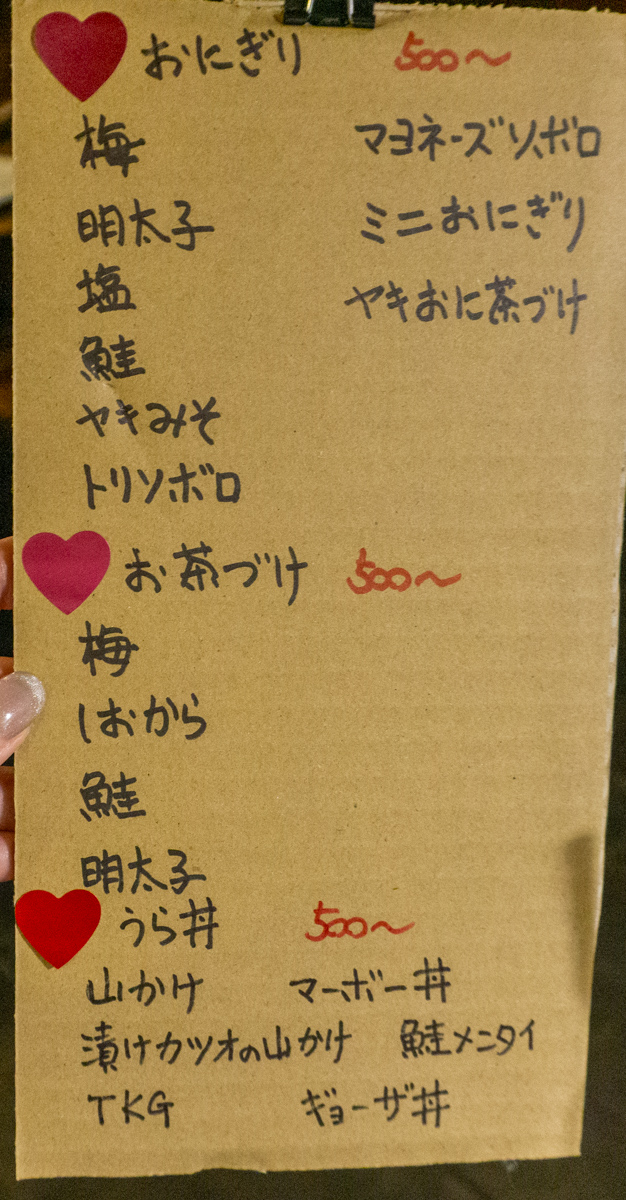 おにぎり 500〜
梅 マヨネーズソボロ
明太子 ミニおにぎり
塩 ヤキおに茶づけ
鮭
ヤキみそ
トリソボロ
お茶づけ 500〜
梅
しおから
鮭
明太子
うら丼 500〜
山かけ マーボー丼
漬けカツオの山かけ 鮭メンタイ
TKG ギョーザ丼